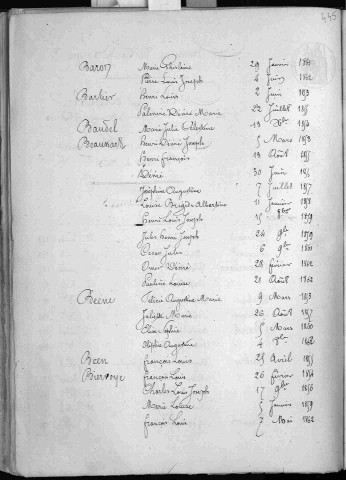 445
Baron Marie Ghislaine 29 Janvier 1861
Pierre Louis Joseph 4 Juin 1862
Barbier Henri Louis 2 Juin 1853
Palmire Désiré Marie 22 Juillet 1855
Baudel Marie Julie Célestine 13 Xbre 1854
Beaumart Henri Désiré Joseph 5 Mars 1853
Henri françois 19 Août 1855
Désiré 30 Juin 1855
Joséphine Augustine 7 Juillet 1857
Louise Brigide Albertine 11 Janvier 1858
Henri Louis Joseph 15 8bre 1859
Jules Henri Joseph 24 9bre 1859
Oscar Jules 6 9bre 1860
Omer Désiré 28 février 1862
Pauline Louise 21 Août 1862
Beene Félicie Augustine Marie 9 Mars 1853
Juliette Marie 26 Août 1857
Elise Sophie 5 Mars 1860
Augustine 4 1862
Been françois Louis 25 Avril 1855
françois Louis 26 février 1854
Charles Louis Joseph 17 9bre 1856
Marie Louise 5 Janvier 1859
françois Louis 7 Mai 1862